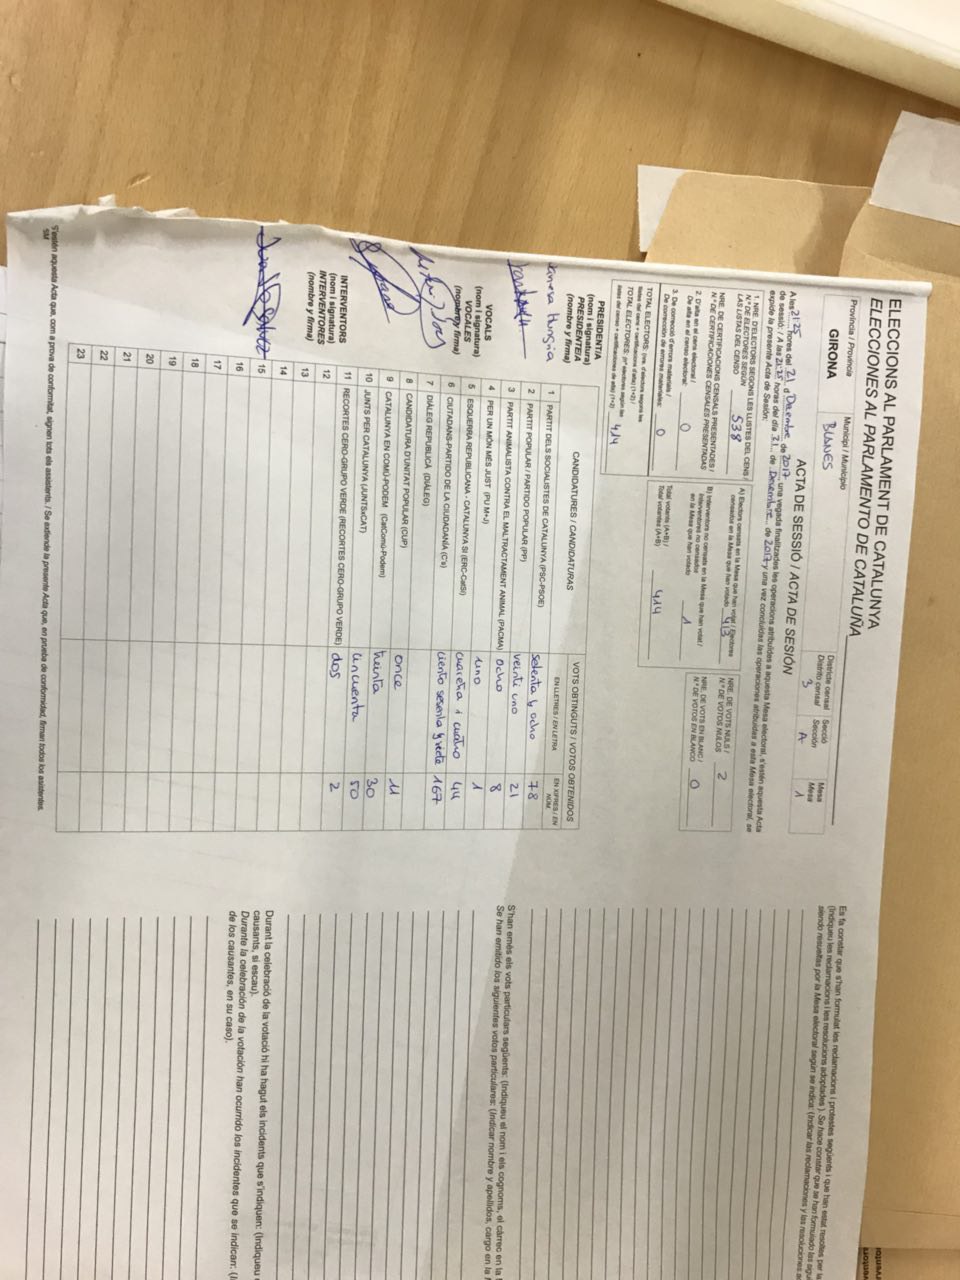 ELECCIONS AL PARLAMENT DE CATALUNYA
ELECCIONES AL PARLAMENTO DE CATALUÑA
Província / Provincia
GIRONA
Municipi / Municipio
BLANES
Districte censal
Distrito censal
3
Secció
Sección
A
Mesa
Mesa
1
ACTA DE SESSIÓ / ACTA DE SESIÓN
A les 21:25 hores del 21 d Decembre de 2017, una vegada finalitzades les operacions atribuïdes a aquesta Mesa electoral, s'estén aquesta Acta
de sessió: / A las 21:25 horas del día 21 de Decembre de 2017 y una vez concluidas las operaciones atribuidas a esta Mesa electoral, se
expide la presente Acta de Sesión:
1. NRE. D'ELECTORS SEGONS LES LLISTES DEL CENS /
N.º DE ELECTORES SEGÚN
LAS LISTAS DEL CENSO 538
NRE. DE CERTIFICACIONS CENSALS PRESENTADES /
N.º DE CERTIFICACIONES CENSALES PRESENTADAS
2. D'alta en el cens electoral /
De alta en el censo electoral: 0
3. De correcció d'errors materials /
De corrección de errores materiales: 0
TOTAL ELECTORS: (nre. d'electors segons les
llistes del cens + certificacions d'alta) (1+2) /
TOTAL ELECTORES: (nº electores según las
listas del censo + certificaciones de alta) (1+2) 414
A) Electors censats en la Mesa que han votat / Electores
censados en la Mesa que han votado 413
B) Interventors no censats en la Mesa que han votat /
Interventores no censados
en la Mesa que han votado 1
Total votants (A+B) /
Total votantes (A+B) 414
NRE. DE VOTS NULS /
N.º DE VOTOS NULOS 2
NRE. DE VOTS EN BLANC /
N.º DE VOTOS EN BLANCO 0
PRESIDENT/A
(nom i signatura)
PRESIDENTE/A
(nombre y firma)
Vanesa Hungria
VOCALS
(nom i signatura)
VOCALES
(nombre y firma)
INTERVENTORS
(nom i signatura)
INTERVENTORES
(nombre y firma)
CANDIDATURES / CANDIDATURAS
VOTS OBTINGUTS / VOTOS OBTENIDOS
EN LLETRES / EN LETRA
EN XIFRES / EN NÚM.
1 PARTIT DELS SOCIALISTES DE CATALUNYA (PSC-PSOE) setenta y ocho 78
2 PARTIT POPULAR / PARTIDO POPULAR (PP) veinti uno 21
3 PARTIT ANIMALISTA CONTRA EL MALTRACTAMENT ANIMAL (PACMA) ocho 8
4 PER UN MÓN MÉS JUST (PU M+J) uno 1
5 ESQUERRA REPUBLICANA - CATALUNYA SÍ (ERC-CatSí) cuarenta i cuatro 44
6 CIUTADANS-PARTIDO DE LA CIUDADANÍA (C's) ciento sesenta y siete 167
7 DIÀLEG REPUBLICÀ (DIÀLEG)
8 CANDIDATURA D'UNITAT POPULAR (CUP) once 11
9 CATALUNYA EN COMÚ-PODEM (CatComú-Podem) treinta 30
10 JUNTS PER CATALUNYA (JUNTSxCAT) cincuenta 50
11 RECORTES CERO-GRUPO VERDE (RECORTES CERO-GRUPO VERDE) dos 2
12
13
14
15
16
17
18
19
20
21
22
23
S'estén aquesta Acta que, com a prova de conformitat, signen tots els assistents. / Se extiende la presente Acta que, en prueba de conformidad, firman todos los asistentes.
5M
Es fa constar que s'han formulat les reclamacions i protestes següents i que han estat resoltes per la
(Indiqueu les reclamacions i les resolucions adoptades ). Se hace constar que se han formulado las
siendo resueltas por la Mesa electoral según se indica: (Indicar las reclamaciones y las resoluciones
S'han emès els vots particulars següents: (Indiqueu el nom i els cognoms, el càrrec en la
Se han emitido los siguientes votos particulares: (Indicar nombre y apellidos, cargo en la
Durant la celebració de la votació hi ha hagut els incidents que s'indiquen: (Indiqueu
causants, si escau).
Durante la celebración de la votación han ocurrido los incidentes que se indican:
de los causantes, en su caso).